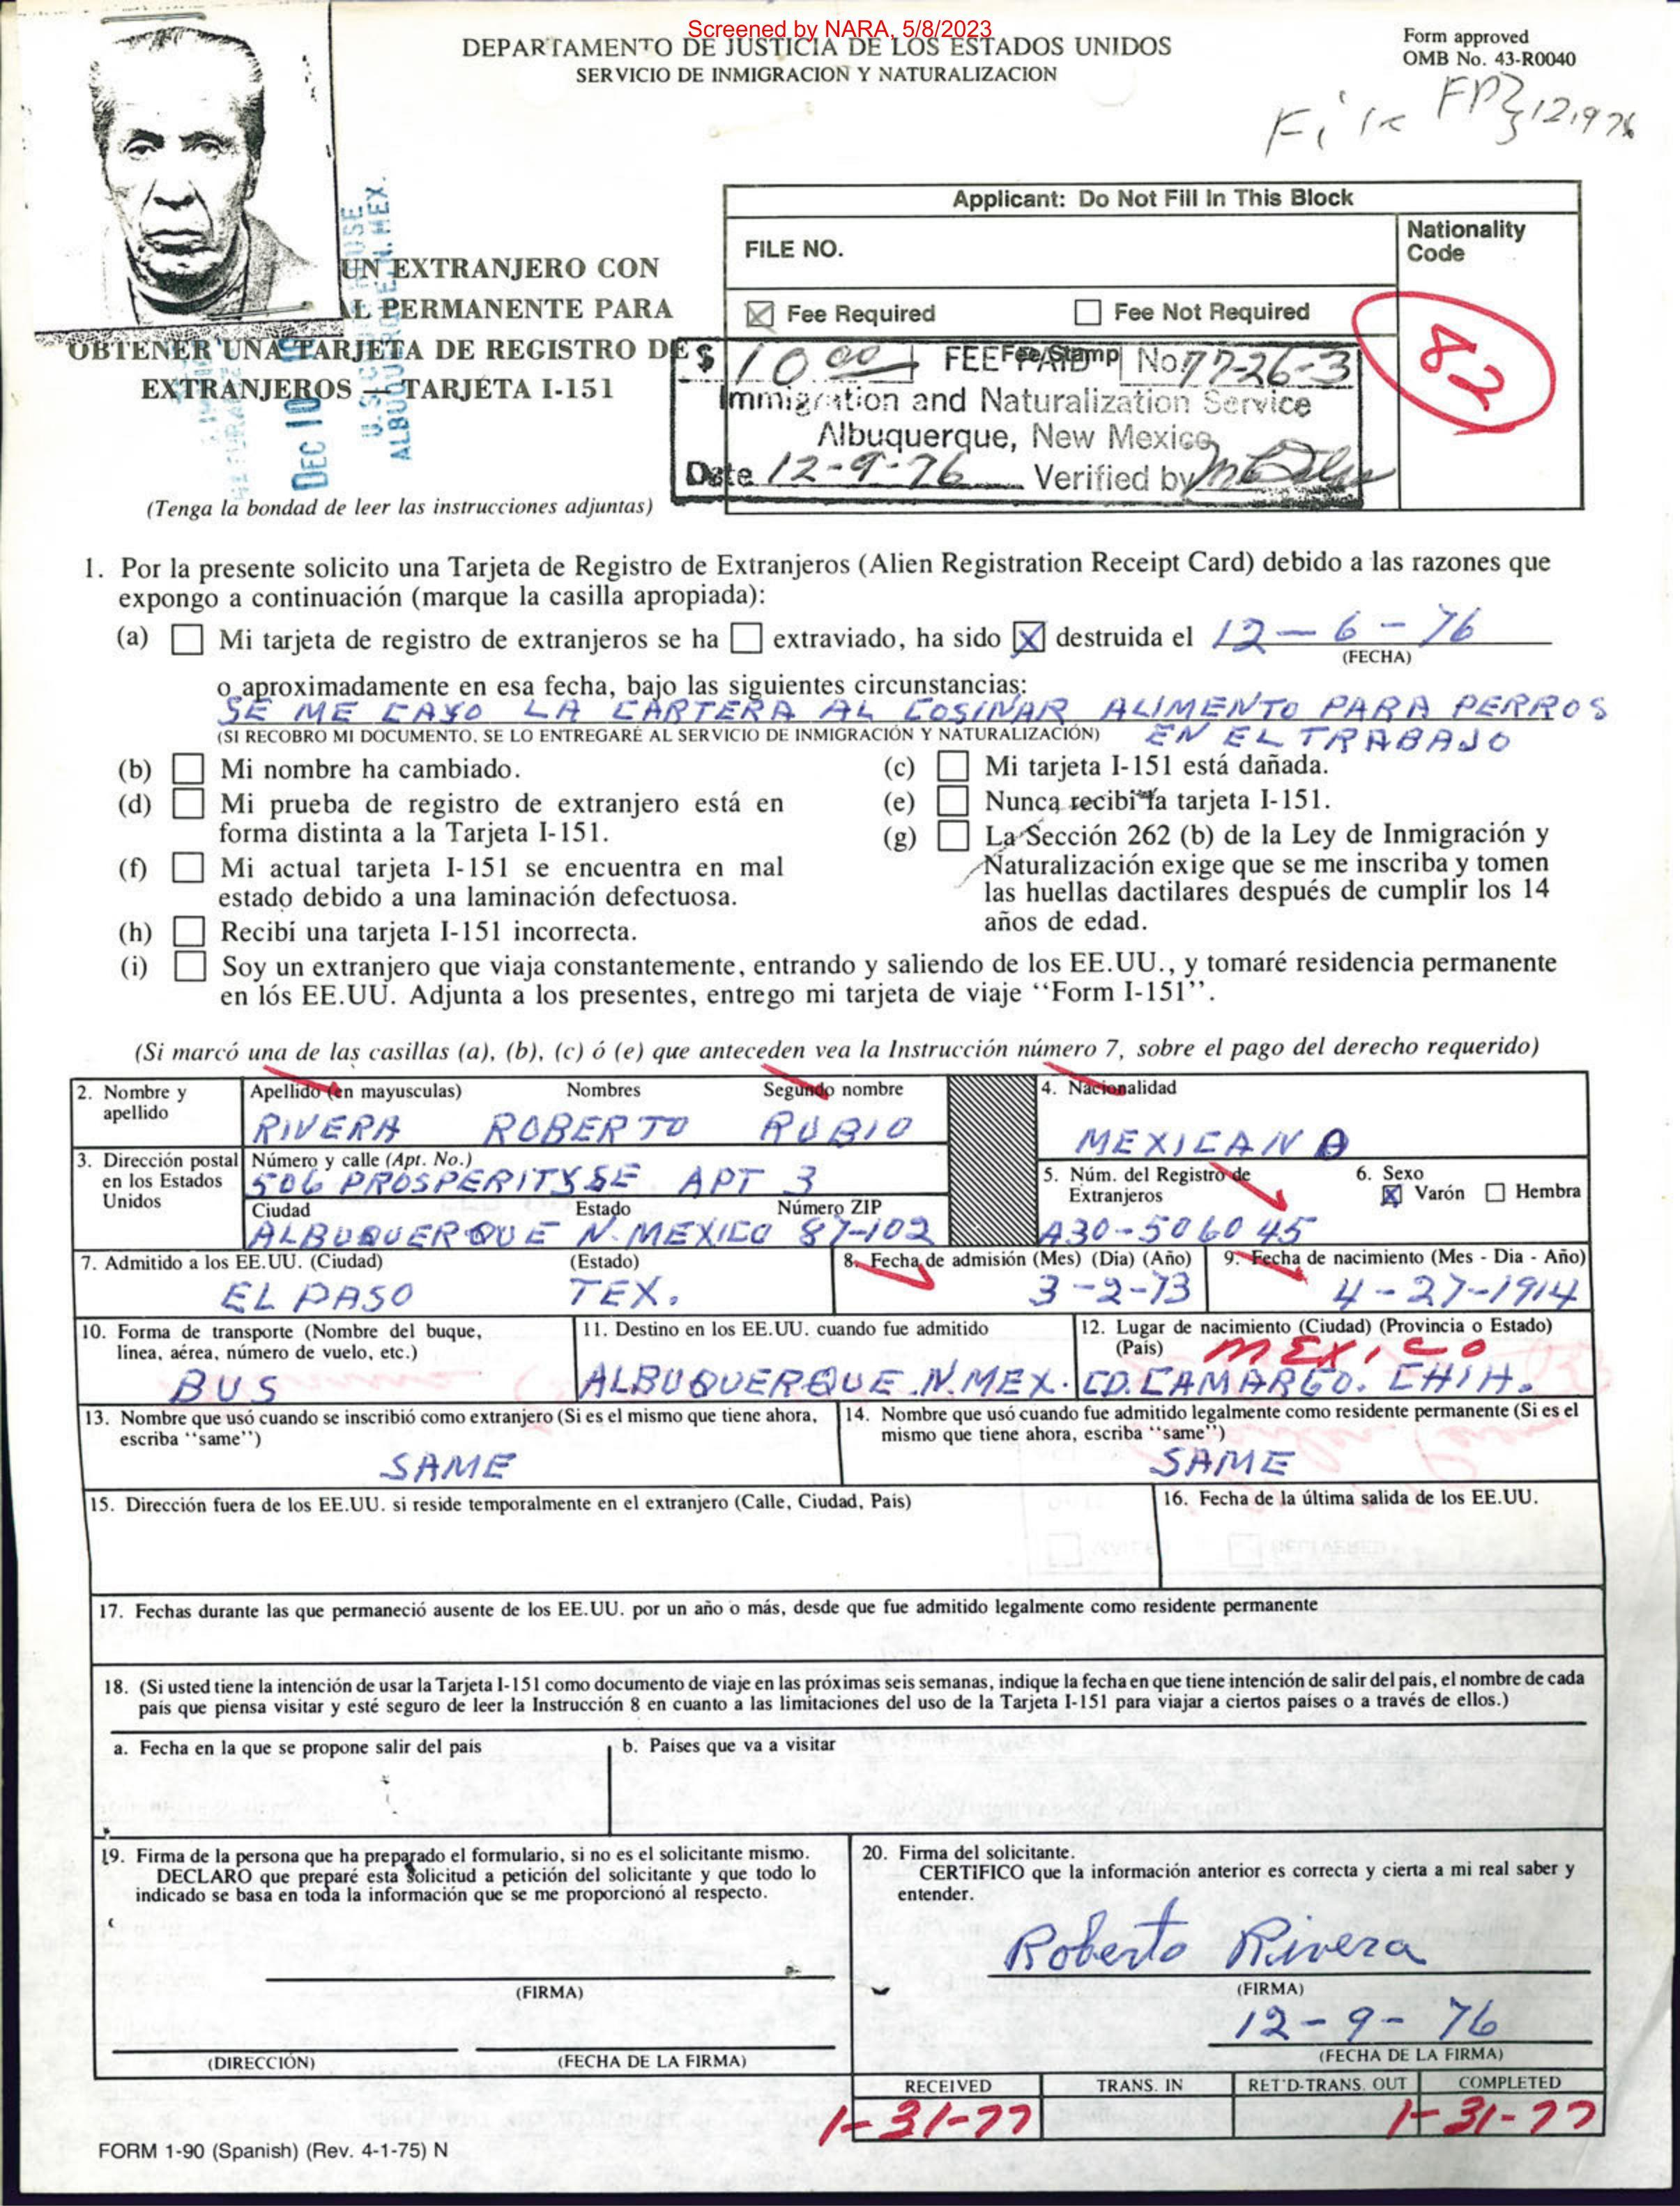 Screened by NARA, 5/8/2023
DEPARTAMENTO DE JUSTICIA DE LOS ESTADOS UNIDOS
SERVICIO DE INMIGRACION Y NATURALIZACION
Form approved
OMB No. 43-R0040
File
UN EXTRANJERO CON
PERMANENTE PARA
OBTENER UNA TARJETA DE REGISTRO DE
EXTRANJEROS — TARJETA I-151
(Tenga la bondad de leer las instrucciones adjuntas)
DEC 10
ALBUQUERQUE, N. MEX.
Applicant: Do Not Fill In This Block
FILE NO.
Nationality
Code
82
☒ Fee Required ☐ Fee Not Required
Fee Stamp
$ 10.00 FEE PAID No. 77-26-3
Immigration and Naturalization Service
Albuquerque, New Mexico
Date 12-9-76 Verified by
1. Por la presente solicito una Tarjeta de Registro de Extranjeros (Alien Registration Receipt Card) debido a las razones que
expongo a continuación (marque la casilla apropiada):
(a) ☐ Mi tarjeta de registro de extranjeros se ha ☐ extraviado, ha sido ☒ destruida el 12-6-76
(FECHA)
o aproximadamente en esa fecha, bajo las siguientes circunstancias:
SE ME CAYO LA CARTERA AL COSINAR ALIMENTO PARA PERROS
(SI RECOBRO MI DOCUMENTO, SE LO ENTREGARÉ AL SERVICIO DE INMIGRACIÓN Y NATURALIZACIÓN) EN EL TRABAJO
(b) ☐ Mi nombre ha cambiado.
(c) ☐ Mi tarjeta I-151 está dañada.
(d) ☐ Mi prueba de registro de extranjero está en
forma distinta a la Tarjeta I-151.
(e) ☐ Nunca recibi la tarjeta I-151.
(f) ☐ Mi actual tarjeta I-151 se encuentra en mal
estado debido a una laminación defectuosa.
(g) ☐ La Sección 262 (b) de la Ley de Inmigración y
Naturalización exige que se me inscriba y tomen
las huellas dactilares después de cumplir los 14
años de edad.
(h) ☐ Recibí una tarjeta I-151 incorrecta.
(i) ☐ Soy un extranjero que viaja constantemente, entrando y saliendo de los EE.UU., y tomaré residencia permanente
en lós EE.UU. Adjunta a los presentes, entrego mi tarjeta de viaje “Form I-151”.
(Si marcó una de las casillas (a), (b), (c) ó (e) que anteceden vea la Instrucción número 7, sobre el pago del derecho requerido)
2. Nombre y
apellido
Apellido (en mayusculas) Nombres Segundo nombre
RIVERA ROBERTO RUBIO
4. Nacionalidad
MEXICANO
3. Dirección postal
en los Estados
Unidos
Número y calle (Apt. No.)
506 PROSPERITY SE APT 3
Ciudad Estado Número ZIP
ALBUQUERQUE N. MEXICO 87-102
5. Núm. del Registro de
Extranjeros
A30-506045
6. Sexo
☒ Varón ☐ Hembra
7. Admitido a los EE.UU. (Ciudad) (Estado)
EL PASO TEX.
8. Fecha de admisión (Mes) (Dia) (Año)
3-2-73
9. Fecha de nacimiento (Mes - Dia - Año)
4-27-1914
10. Forma de transporte (Nombre del buque,
linea, aérea, número de vuelo, etc.)
BUS
11. Destino en los EE.UU. cuando fue admitido
ALBUQUERQUE N.MEX.
12. Lugar de nacimiento (Ciudad) (Provincia o Estado)
(Pais) MEXICO
CD. CAMARGO. CHIH.
13. Nombre que usó cuando se inscribió como extranjero (Si es el mismo que tiene ahora,
escriba “same”)
SAME
14. Nombre que usó cuando fue admitido legalmente como residente permanente (Si es el
mismo que tiene ahora, escriba “same”)
SAME
15. Dirección fuera de los EE.UU. si reside temporalmente en el extranjero (Calle, Ciudad, Pais)
16. Fecha de la última salida de los EE.UU.
17. Fechas durante las que permaneció ausente de los EE.UU. por un año o más, desde que fue admitido legalmente como residente permanente
18. (Si usted tiene la intención de usar la Tarjeta I-151 como documento de viaje en las próximas seis semanas, indique la fecha en que tiene intención de salir del país, el nombre de cada
pais que piensa visitar y esté seguro de leer la Instrucción 8 en cuanto a las limitaciones del uso de la Tarjeta I-151 para viajar a ciertos paises o a través de ellos.)
a. Fecha en la que se propone salir del pais
b. Paises que va a visitar
19. Firma de la persona que ha preparado el formulario, si no es el solicitante mismo.
DECLARO que preparé esta solicitud a petición del solicitante y que todo lo
indicado se basa en toda la información que se me proporcionó al respecto.
(FIRMA)
(DIRECCIÓN) (FECHA DE LA FIRMA)
20. Firma del solicitante.
CERTIFICO que la información anterior es correcta y cierta a mi real saber y
entender.
Roberto Rivera
(FIRMA)
12-9-76
(FECHA DE LA FIRMA)
RECEIVED TRANS. IN RET'D-TRANS. OUT COMPLETED
1-31-77 1-31-77
FORM 1-90 (Spanish) (Rev. 4-1-75) N